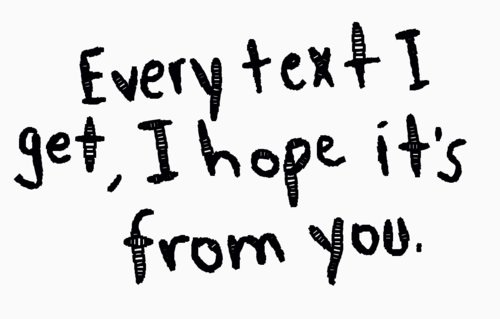 Every text I
get, I hope it's
from you.